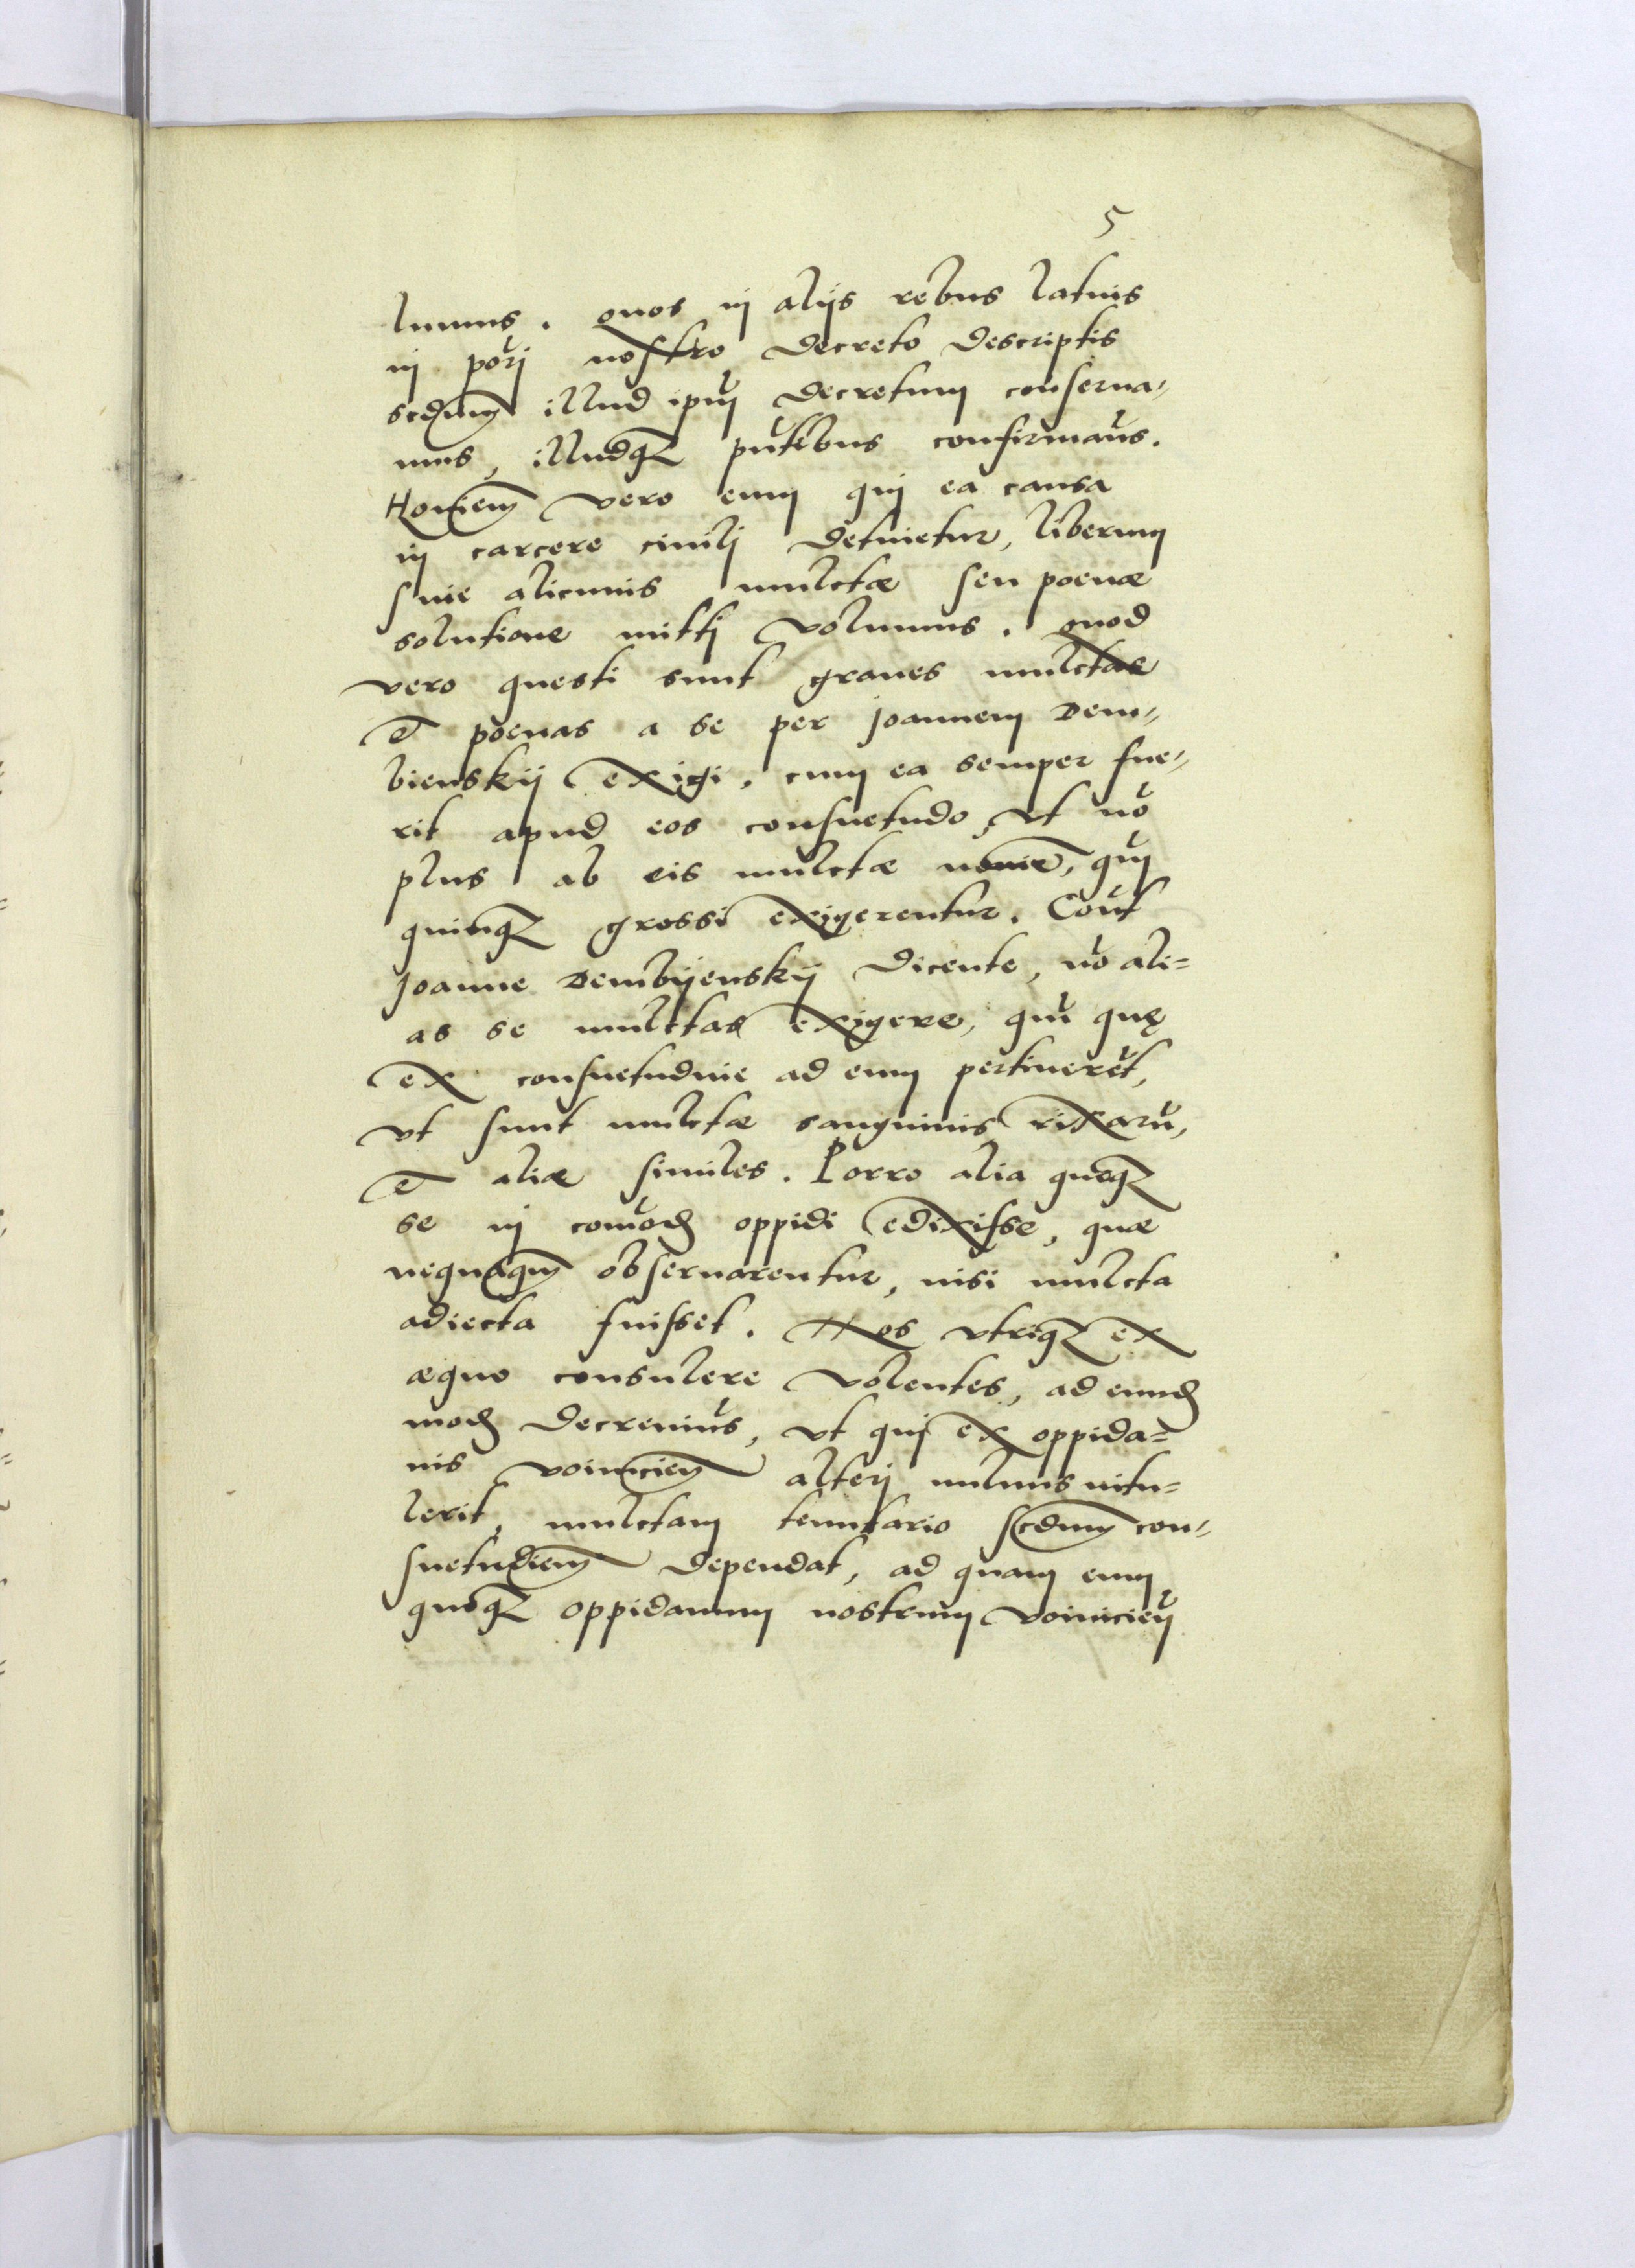 5
luimus. quos in alijs rebus latius
in pōri nostro decreto descriptis
scdum illud ipm̄ decretum conserua,,
mus, illudq̨ pn̄tibus confirmam̄s.
Hominem vero eum qui ea causa
in carcere ciuili detinetur, liberum
sine alicuius mulctæ seu poenæ
solutione mitti volumus. quod
vero questi sunt graues mulctas
et poenas a se per Joannem Dem,,
bienskij exigi. cum ea semper fue,,
rit apud eos consuetudo, vt nō
plus ab eis mulctæ nomine, qm̄
quinq̨ grossi exigerentur. Cont̄
Joanne Dembijenskij dicente, nō ali=
as se mulctas exigere, qm̄ quę
ex consuetudine ad eum pertinerēt,
vt sunt mulctæ sanguinis, rixarū,
et aliæ similes. Porro alia quoq̨
se in comod oppidi edixisse, quæ
nequaqm obseruarentur, nisi mulcta
adiecta fuisset. Nos vtriq̨ ex
æquo consulere volentes, ad eund
mod decreuim̄s, vt qui ex oppida=
nis voinicien alteri uulnus intu=
lerit, mulctam tenutario scdum con,,
suetudinem dependat, ad quam eum
quoq̨ oppidanum nostrum voinicien̄